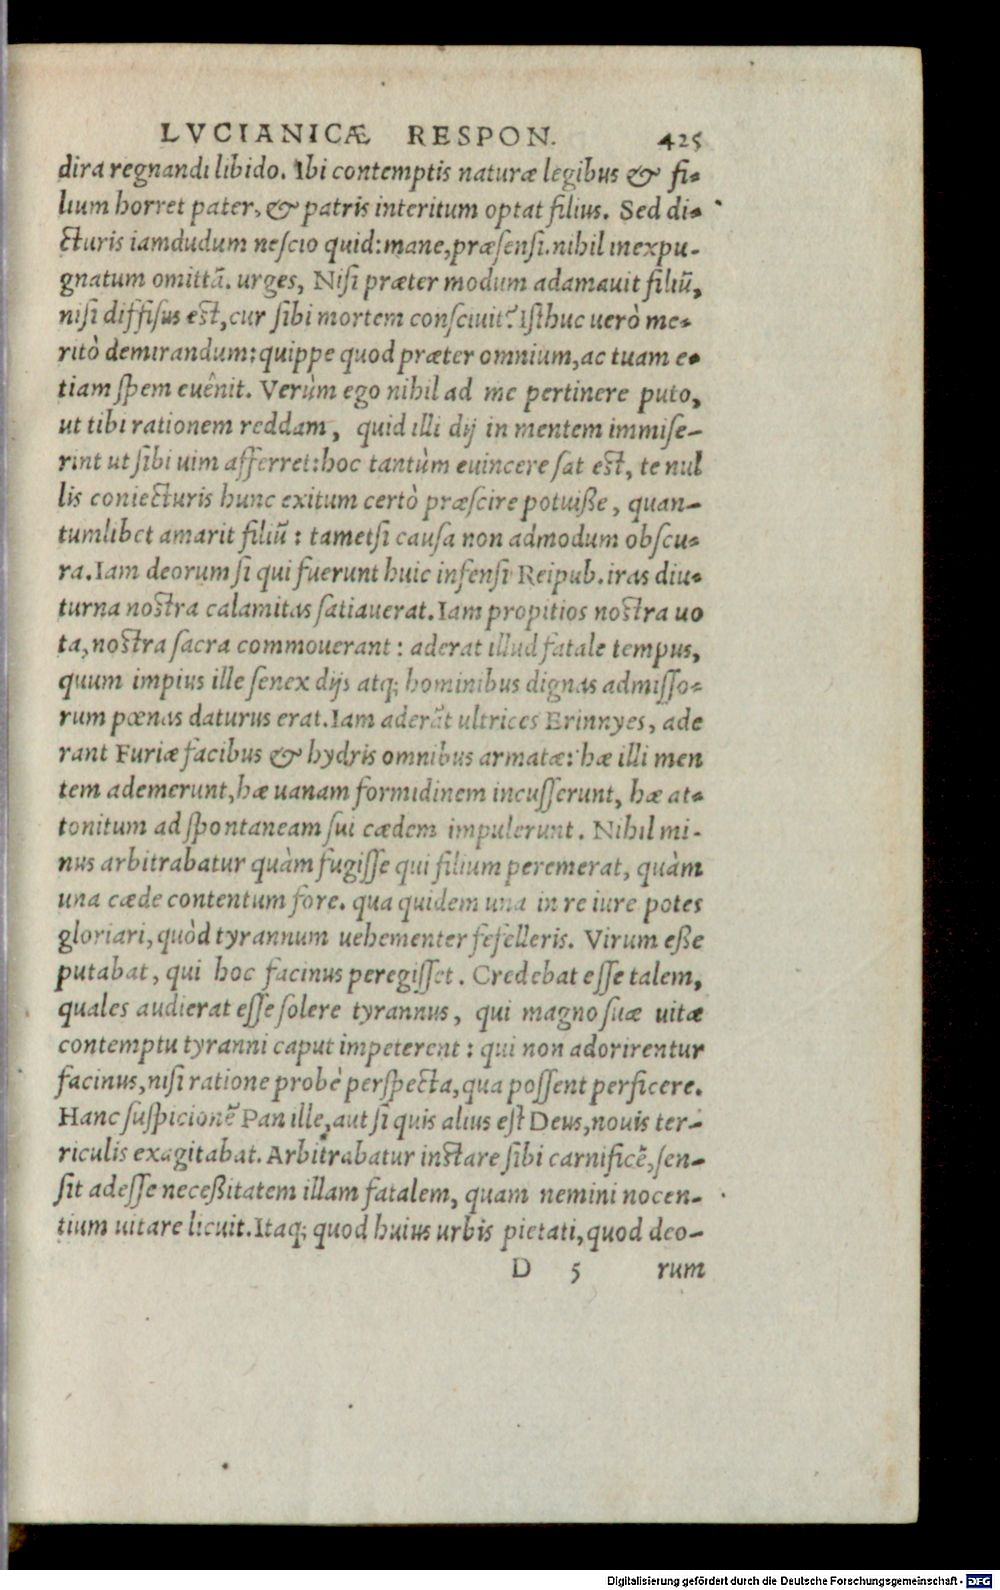 LVCIANICÆ RESPON. 425
dira regnandi libido. Ibi contemptis naturæ legibus & fi-
lium horret pater, & patris interitum optat filius. Sed di-
cturis iamdudum nescio quid: mane, præsensi. nihil inexpu-
gnatum omittã. urges, Nisi præter modum adamauit filiũ,
nisi diffisus est, cur sibi mortem consciuit? Isthuc uerò me-
ritò demirandum: quippe quod præter omnium, ac tuam e-
tiam spem euênit. Verùm ego nihil ad me pertinere puto,
ut tibi rationem reddam, quid illi dij in mentem immise-
rint ut sibi uim afferret: hoc tantùm euincere sat est, te nul
lis coniecturis hunc exitum certò præscire potuiße, quan-
tumlibet amarit filiũ: tametsi causa non admodum obscu-
ra. Iam deorum si qui fuerunt huic infensi Reipub. iras diu-
turna nostra calamitas satiauerat. Iam propitios nostra uo
ta, nostra sacra commouerant: aderat illud fatale tempus,
quum impius ille senex dijs atq; hominibus dignas admisso-
rum pœnas daturus erat. Iam aderãt ultrices Erinnyes, ade
rant Furiæ facibus & hydris omnibus armatæ: hæ illi men
tem ademerunt, hæ uanam formidinem incusserunt, hæ at-
tonitum ad spontaneam sui cædem impulerunt. Nihil mi-
nus arbitrabatur quàm fugisse qui filium peremerat, quàm
una cæde contentum fore. qua quidem una in re iure potes
gloriari, quòd tyrannum uehementer fefelleris. Virum eße
putabat, qui hoc facinus peregisset. Credebat esse talem,
quales audierat esse solere tyrannus, qui magno suæ uitæ
contemptu tyranni caput impeterent: qui non adorirentur
facinus, nisi ratione probè perspecta, qua possent perficere.
Hanc suspicionẽ Pan ille, aut si quis alius est Deus, nouis ter-
riculis exagitabat. Arbitrabatur instare sibi carnificẽ, sen-
sit adesse neceßitatem illam fatalem, quam nemini nocen-
tium uitare licuit. Itaq; quod huius urbis pietati, quod deo-
D 5 rum
Digitalisierung gefördert durch die Deutsche Forschungsgemeinschaft - DFG